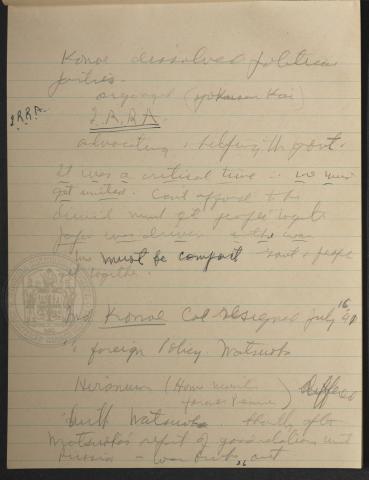 Konoe dissolved political
parties.
organized (Yokusan Kai)
I.R.R.A.
I.R.R.A.
advocating, helping the govt.
It was a critical time
got united. Can't afford to be
divided must get people together
Japan was driven in the war
must be compact govt & people
get together.
2nd Konoe Cab resigned July 16 41
foreign Policy. Matsuoka
Hiranuma (Home
former Premier) differed
with Matsuoka. Shortly after
Matsuoka's report of good relations with
Russia – war broke out